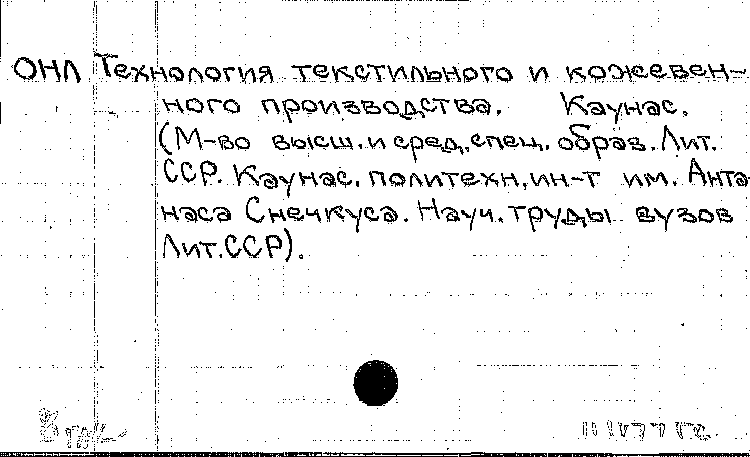 ОНЛ Технология текстильного и кожевен-
ного производства. Каунас.
(М-во высш. и сред. спец. образ. Лит.
ССР. Каунас. политехн. ин-т им. Анта-
наса Снечкуса. Науч. труды вузов
Лит. ССР).